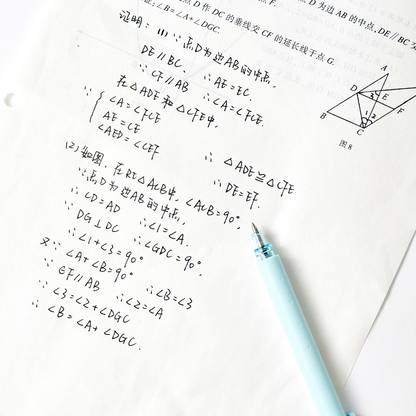 点 D 作 DC 的垂线交 CF 的延长线于点 G.
∠B=∠A+∠DGC.
D 为边 AB 的中点, DE∥BC
证明: (1) ∵ 点D为边AB的中点,
DE∥BC
∴ AE=EC.
∵ CF∥AB ∴ ∠A=∠FCE.
在△ADE和△CFE中,
∵ { ∠A=∠FCE
AE=CE
∠AED=∠CEF
∴ △ADE≌△CFE
∴ DE=EF.
(2) 如图, 在Rt△ACB中, ∠ACB=90°
∵ 点D为边AB的中点,
∴ CD=AD ∴ ∠1=∠A.
∵ DG⊥DC ∴ ∠GDC=90°,
∴ ∠1+∠3=90°
又∵ ∠A+∠B=90° ∴ ∠B=∠3
∵ CF∥AB ∴ ∠2=∠A
∵ ∠3=∠2+∠DGC
∴ ∠B=∠A+∠DGC.
A
D
E
F
B
C
3
1
2
图8